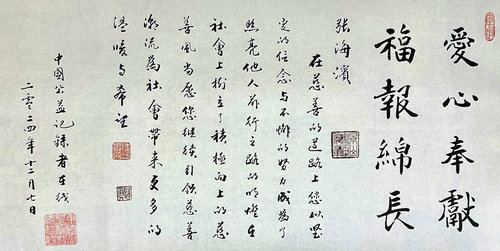 愛心奉獻
福報綿長
張海濱
在慈善的道路上您以堅
定的信念与不懈的努力成為了
照亮他人前行之路的明燈在
社會上树立了積極向上的慈
善風尚愿您继续引领慈善
潮流為社會帶来更多的
溫暖与希望
中國公益記錄者在线
二零二四年十二月七日